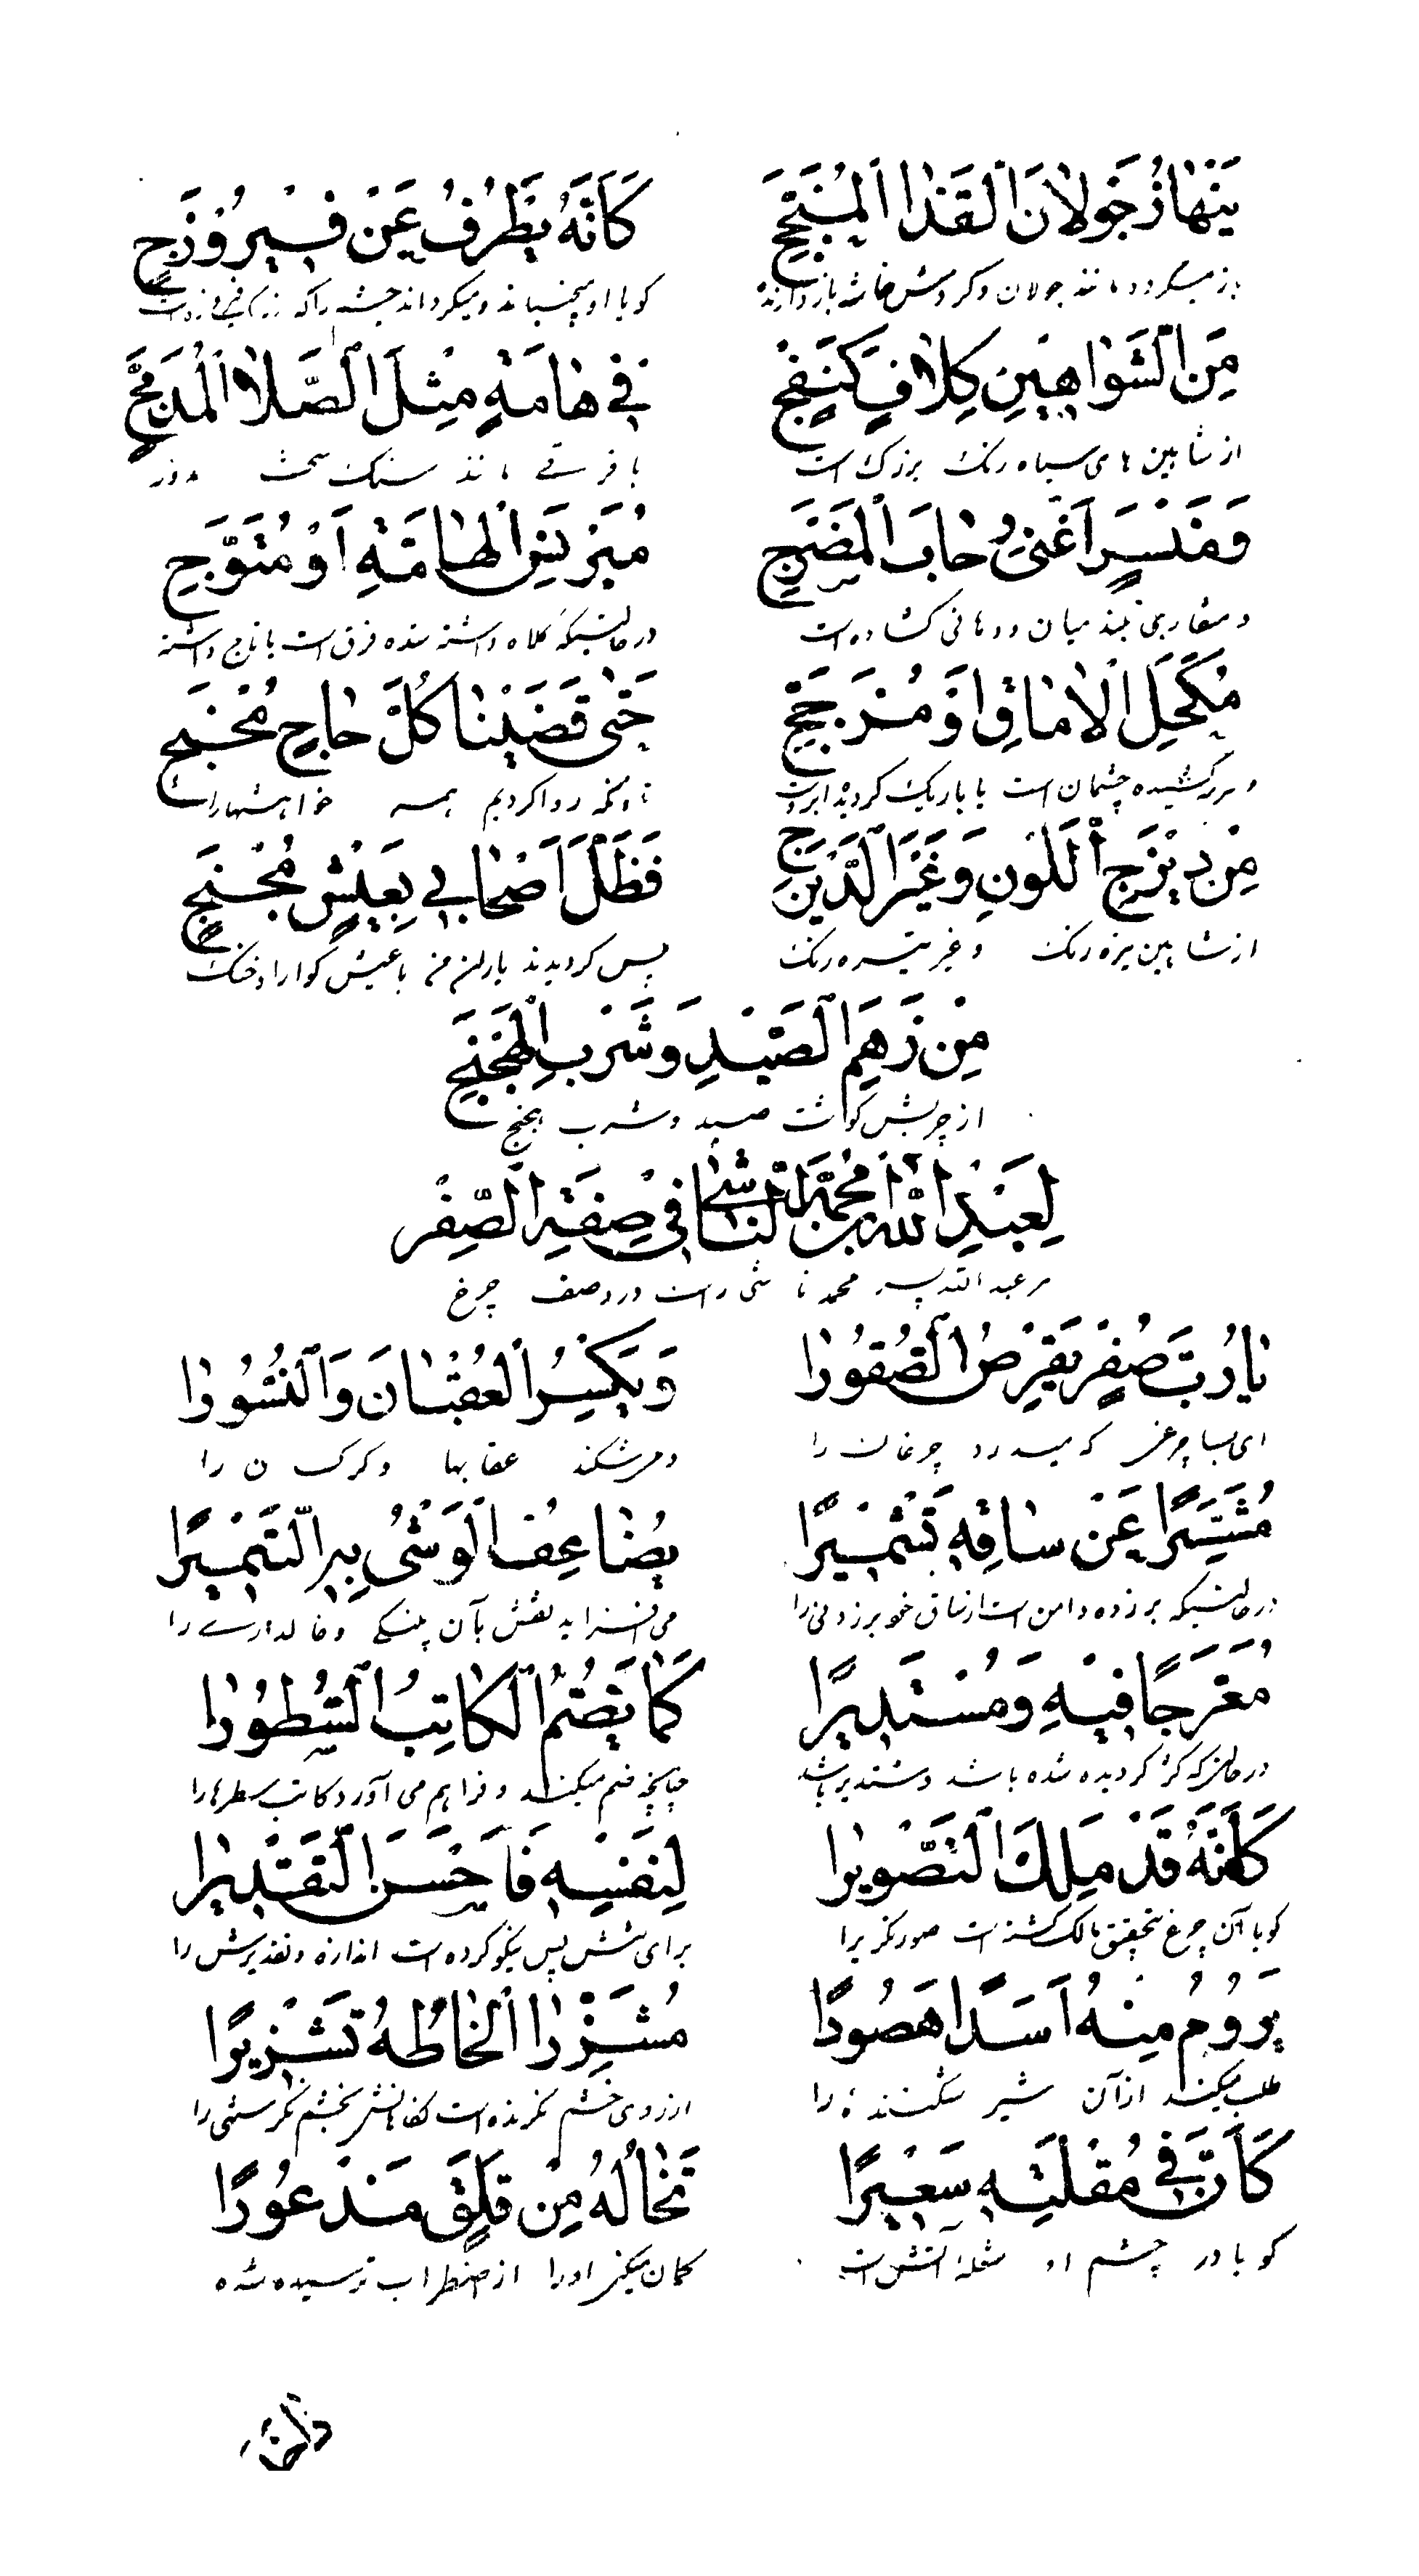 يَنْهَازُ جَوَلَانَ الْقَذَا الْمُنَجَّجِ كَأَنَّهُ يَطْرُفُ عَنْ فَيْرُوزَجِ
باز میگردد مانند جولان و گردش گویا او میجنباند و میگرداند چشم را که
مِنَ الشَّوَاهِينِ كِلَافٍ كَنَفَجِ فِي هَامَةٍ مِثْلَ الصَّلَا الْمُدَمَّجِ
از شاهین های سیاه رنگ بزرگ است با فرقے مانند سنگ سخت مدور
وَمَنْسَرٍ أَغْنَى رُحَابَ الْمَضْرَجِ مُبَرْنَسِ الْهَامَةِ أَوْ مُتَوَّجِ
و منقار بلند میان و دهانی گشاده است در حالتیکه کلاه داشته شده فرق است یا تاج داشته
مُكَحَّلِ الْآمَاقِ أَوْ مُزَجَّجِ حَتَّى قَضَيْنَا كُلَّ حَاجٍ مُحْنَجِ
و سرمه کشیده چشمان است یا باریک گردیده ابرو است تا آنکه روا کردیم همه خواهشها را
مِنْ دَيْزَجِ اللَّوْنِ وَغَيْرِ الدَّيْزَجِ فَظَلَّ أَصْحَابِي بِعَيْشٍ مُجْنَجِ
از شاهین تیزه رنگ و غیر تیره رنگ پس گردیدند یاران من با عیش گوارا و خنک
مِنْ زَهِمِ الصَّيْدِ وَشُرْبِ الْبَخْنَجِ
از چربش گوشت صید و شرب بخنج
لِعَبْدِ اللهِ بْنِ مُحَمَّدٍ النَّاشِي فِي صِفَةِ الصَّقْرِ
مر عبد الله پسر محمد ناشی راست در وصف چرغ
يَا رُبَّ صَقْرٍ يَفْرِصُ الصُّقُورَا وَيَكْسِرُ الْعُقْبَانَ وَالنُّسُورَا
ای بسا چرغی که میدرد چرغان را و میشکند عقابها و کرکسان را
مُشَمِّرًا عَنْ سَاقِهِ تَشْمِيرًا يُضَاعِفُ الْوَشْىُ بِهِ التَّنْمِيرَا
در حالتیکه بر زده دامن است از ساق خود بر زدنی را می افزاید نقش بآن پلنگی و خالدارے را
مُعَرَّجًا فِيهِ وَمُسْتَدِيرًا كَمَا يَضُمُّ الْكَاتِبُ السُّطُورَا
در حالتیکه کژ گردیده شده باشد و مستدیر باشد چنانچه ضم میکند و فراهم می آورد کاتب سطرها را
كَأَنَّهُ قَدْ مَلِكَ التَّصْوِيرَا لِنَفْسِهِ فَأَحْسَنَ التَّقْدِيرَا
گویا آن چرغ بتحقیق مالک گشته است صورتگریرا برای نفسش پس نیکو کرده است اندازه و تقدیرش را
يَرُومُ مِنْهُ أَسَدًا هَصُورًا مُشَزِّرًا أَلْحَاظُهُ تَشْزِيرًا
طلب میکند از آن شیر شکننده را از روی خشم نگرنده است بخشم نگرستنی را
كَأَنَّ فِي مُقْلَتِهِ سَعِيرًا تَخَالُهُ مِنْ قَلَقٍ مَذْعُورًا
گویا در چشم او شعلهٔ آتش است گمان میکنی او را از اضطراب ترسیده شده